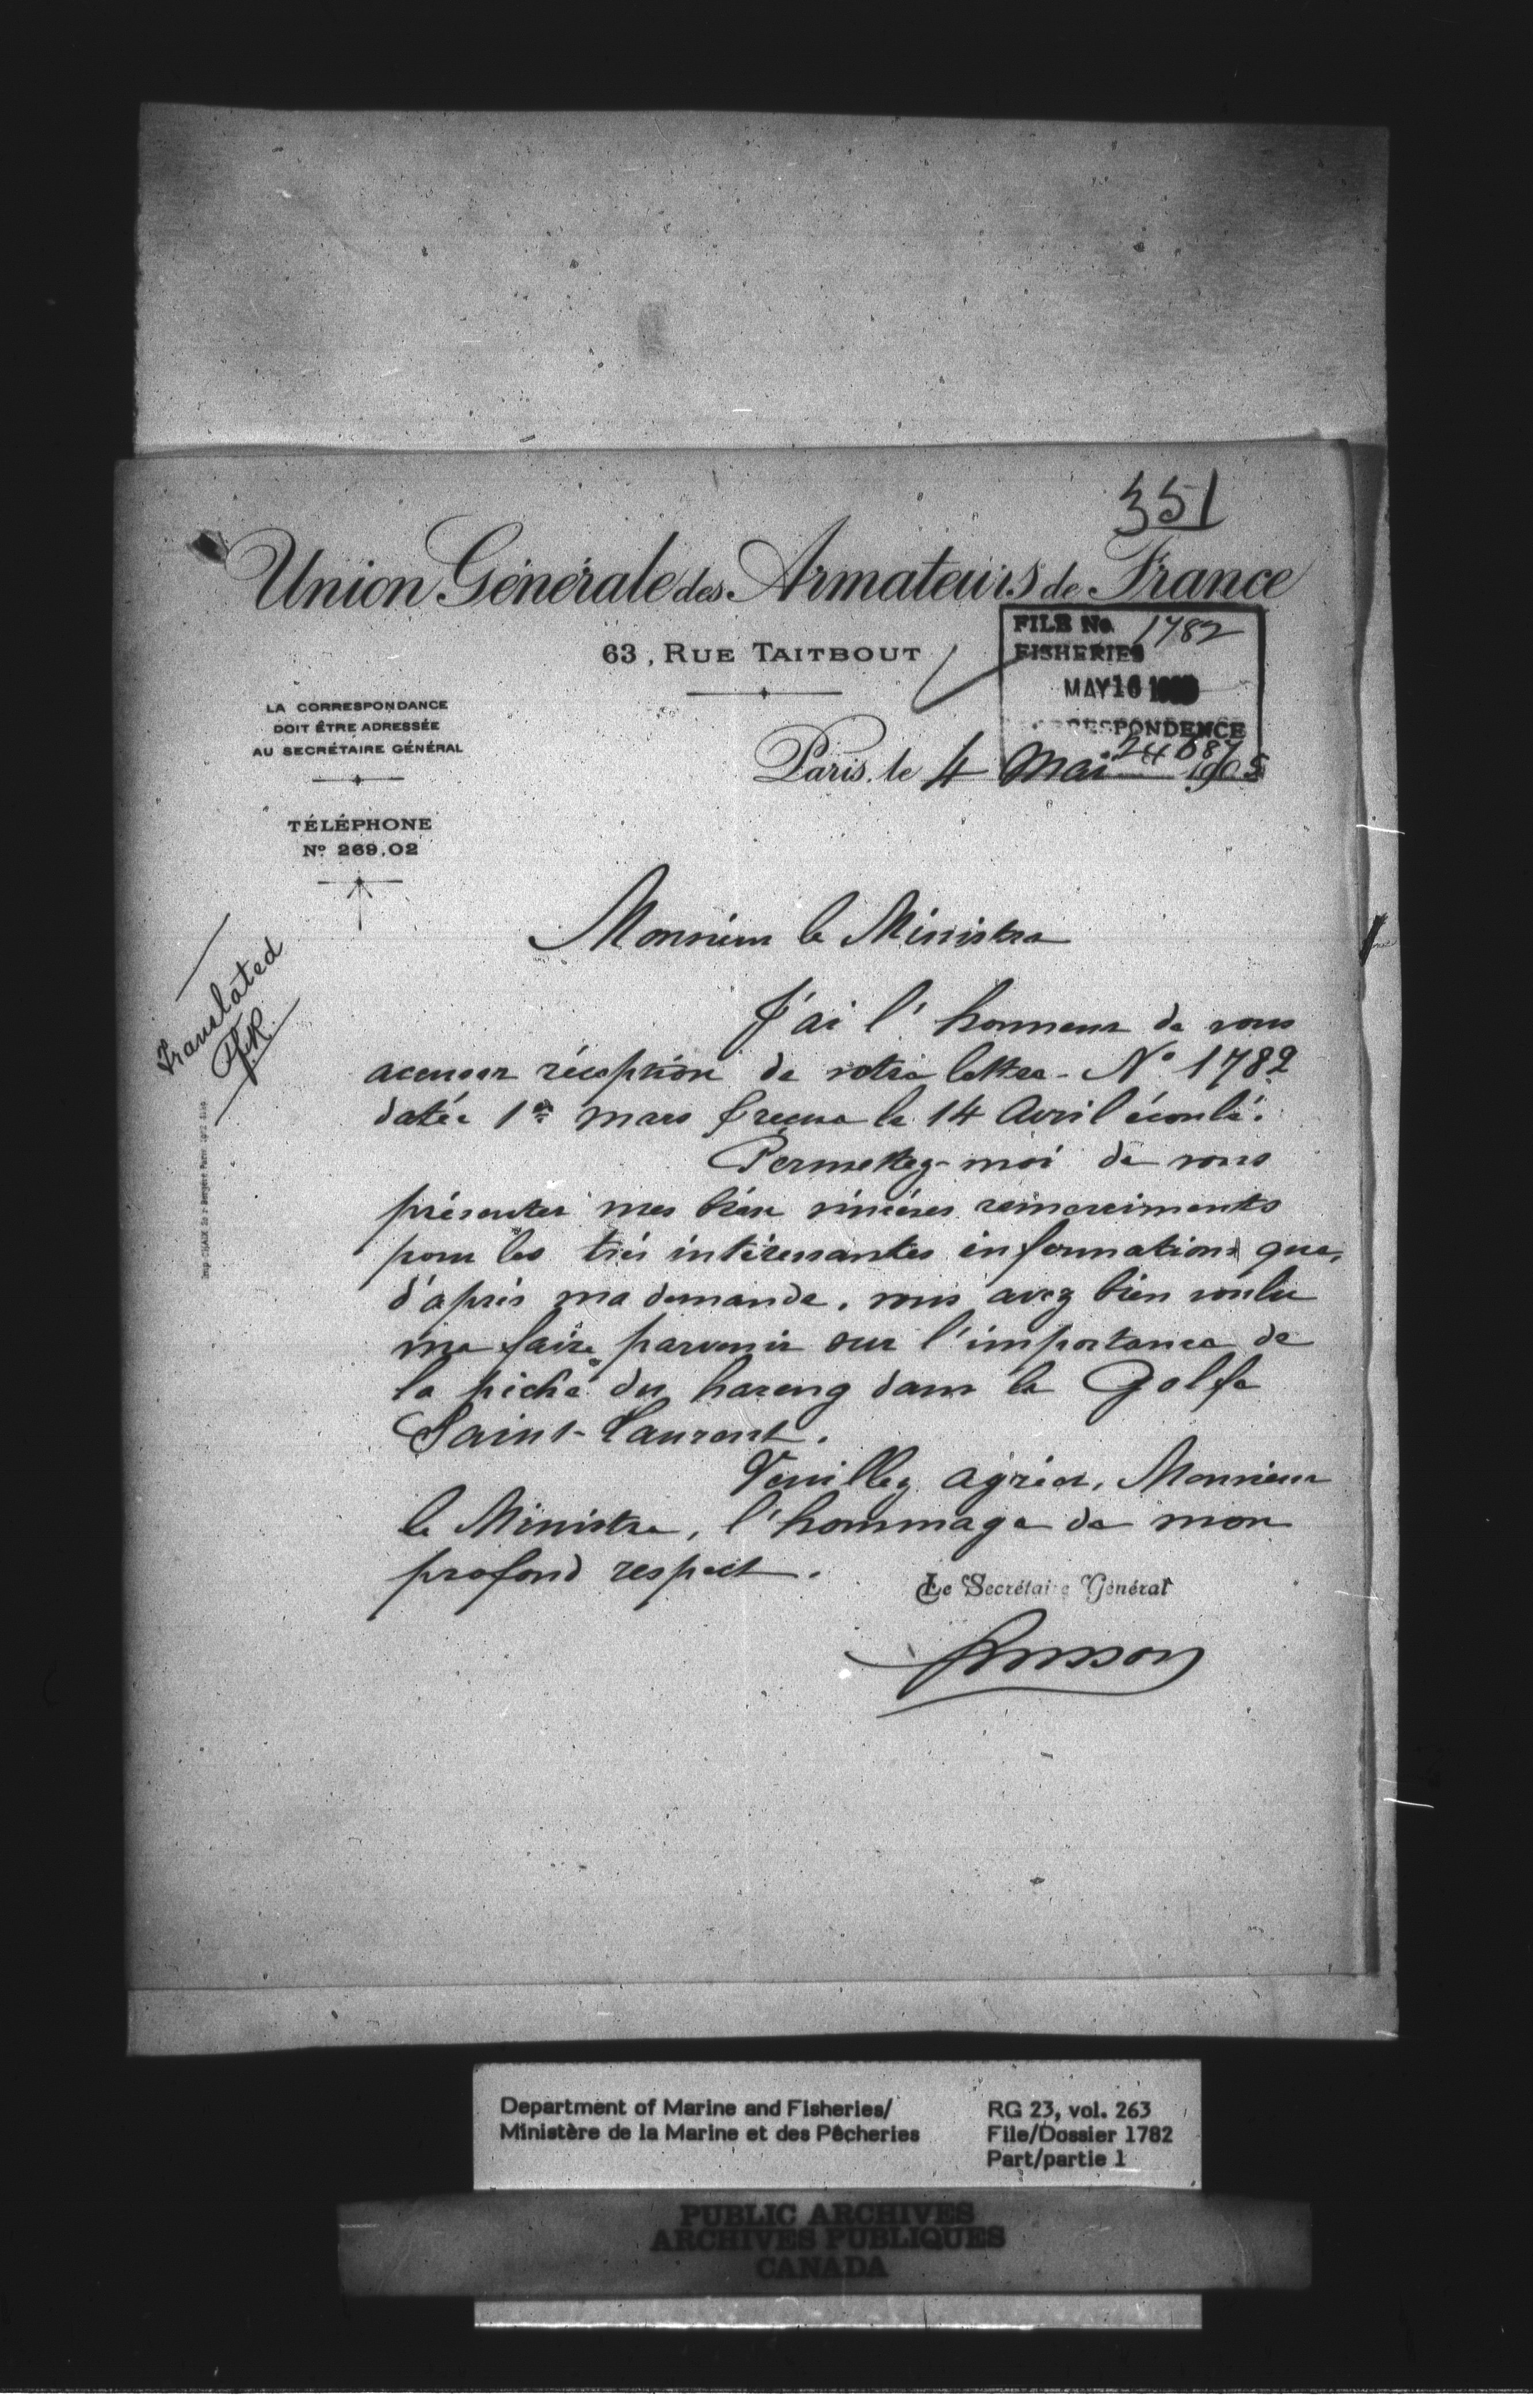 351
Union Générale des Armateurs de France
63, RUE TAITBOUT
FILE No. 1782
FISHERIES
MAY 16
CORRESPONDENCE
24687
LA CORRESPONDANCE
DOIT ÊTRE ADRESSÉE
AU SECRÉTAIRE GÉNÉRAL
Paris, le 4 Mai 1905
TÉLÉPHONE
No 269.02
Translated
Monsieur le Ministre
J'ai l'honneur de vous
accuser réception de votre lettre No 1782
datée 1er mars & reçue le 14 Avril écoulé.
Permettez-moi de vous
présenter mes bien sincères remerciments
pour les très intéressantes informations que,
d'après ma demande, vous avez bien voulu
me faire parvenir sur l'importance de
la pêche du hareng dans le Golfe
Saint-Laurent.
Veuillez agréer, Monsieur
le Ministre, l'hommage de mon
profond respect.
Le Secrétaire Général
Department of Marine and Fisheries/
Ministère de la Marine et des Pêcheries
RG 23, vol. 263
File/Dossier 1782
Part/partie 1
PUBLIC ARCHIVES
ARCHIVES PUBLIQUES
CANADA